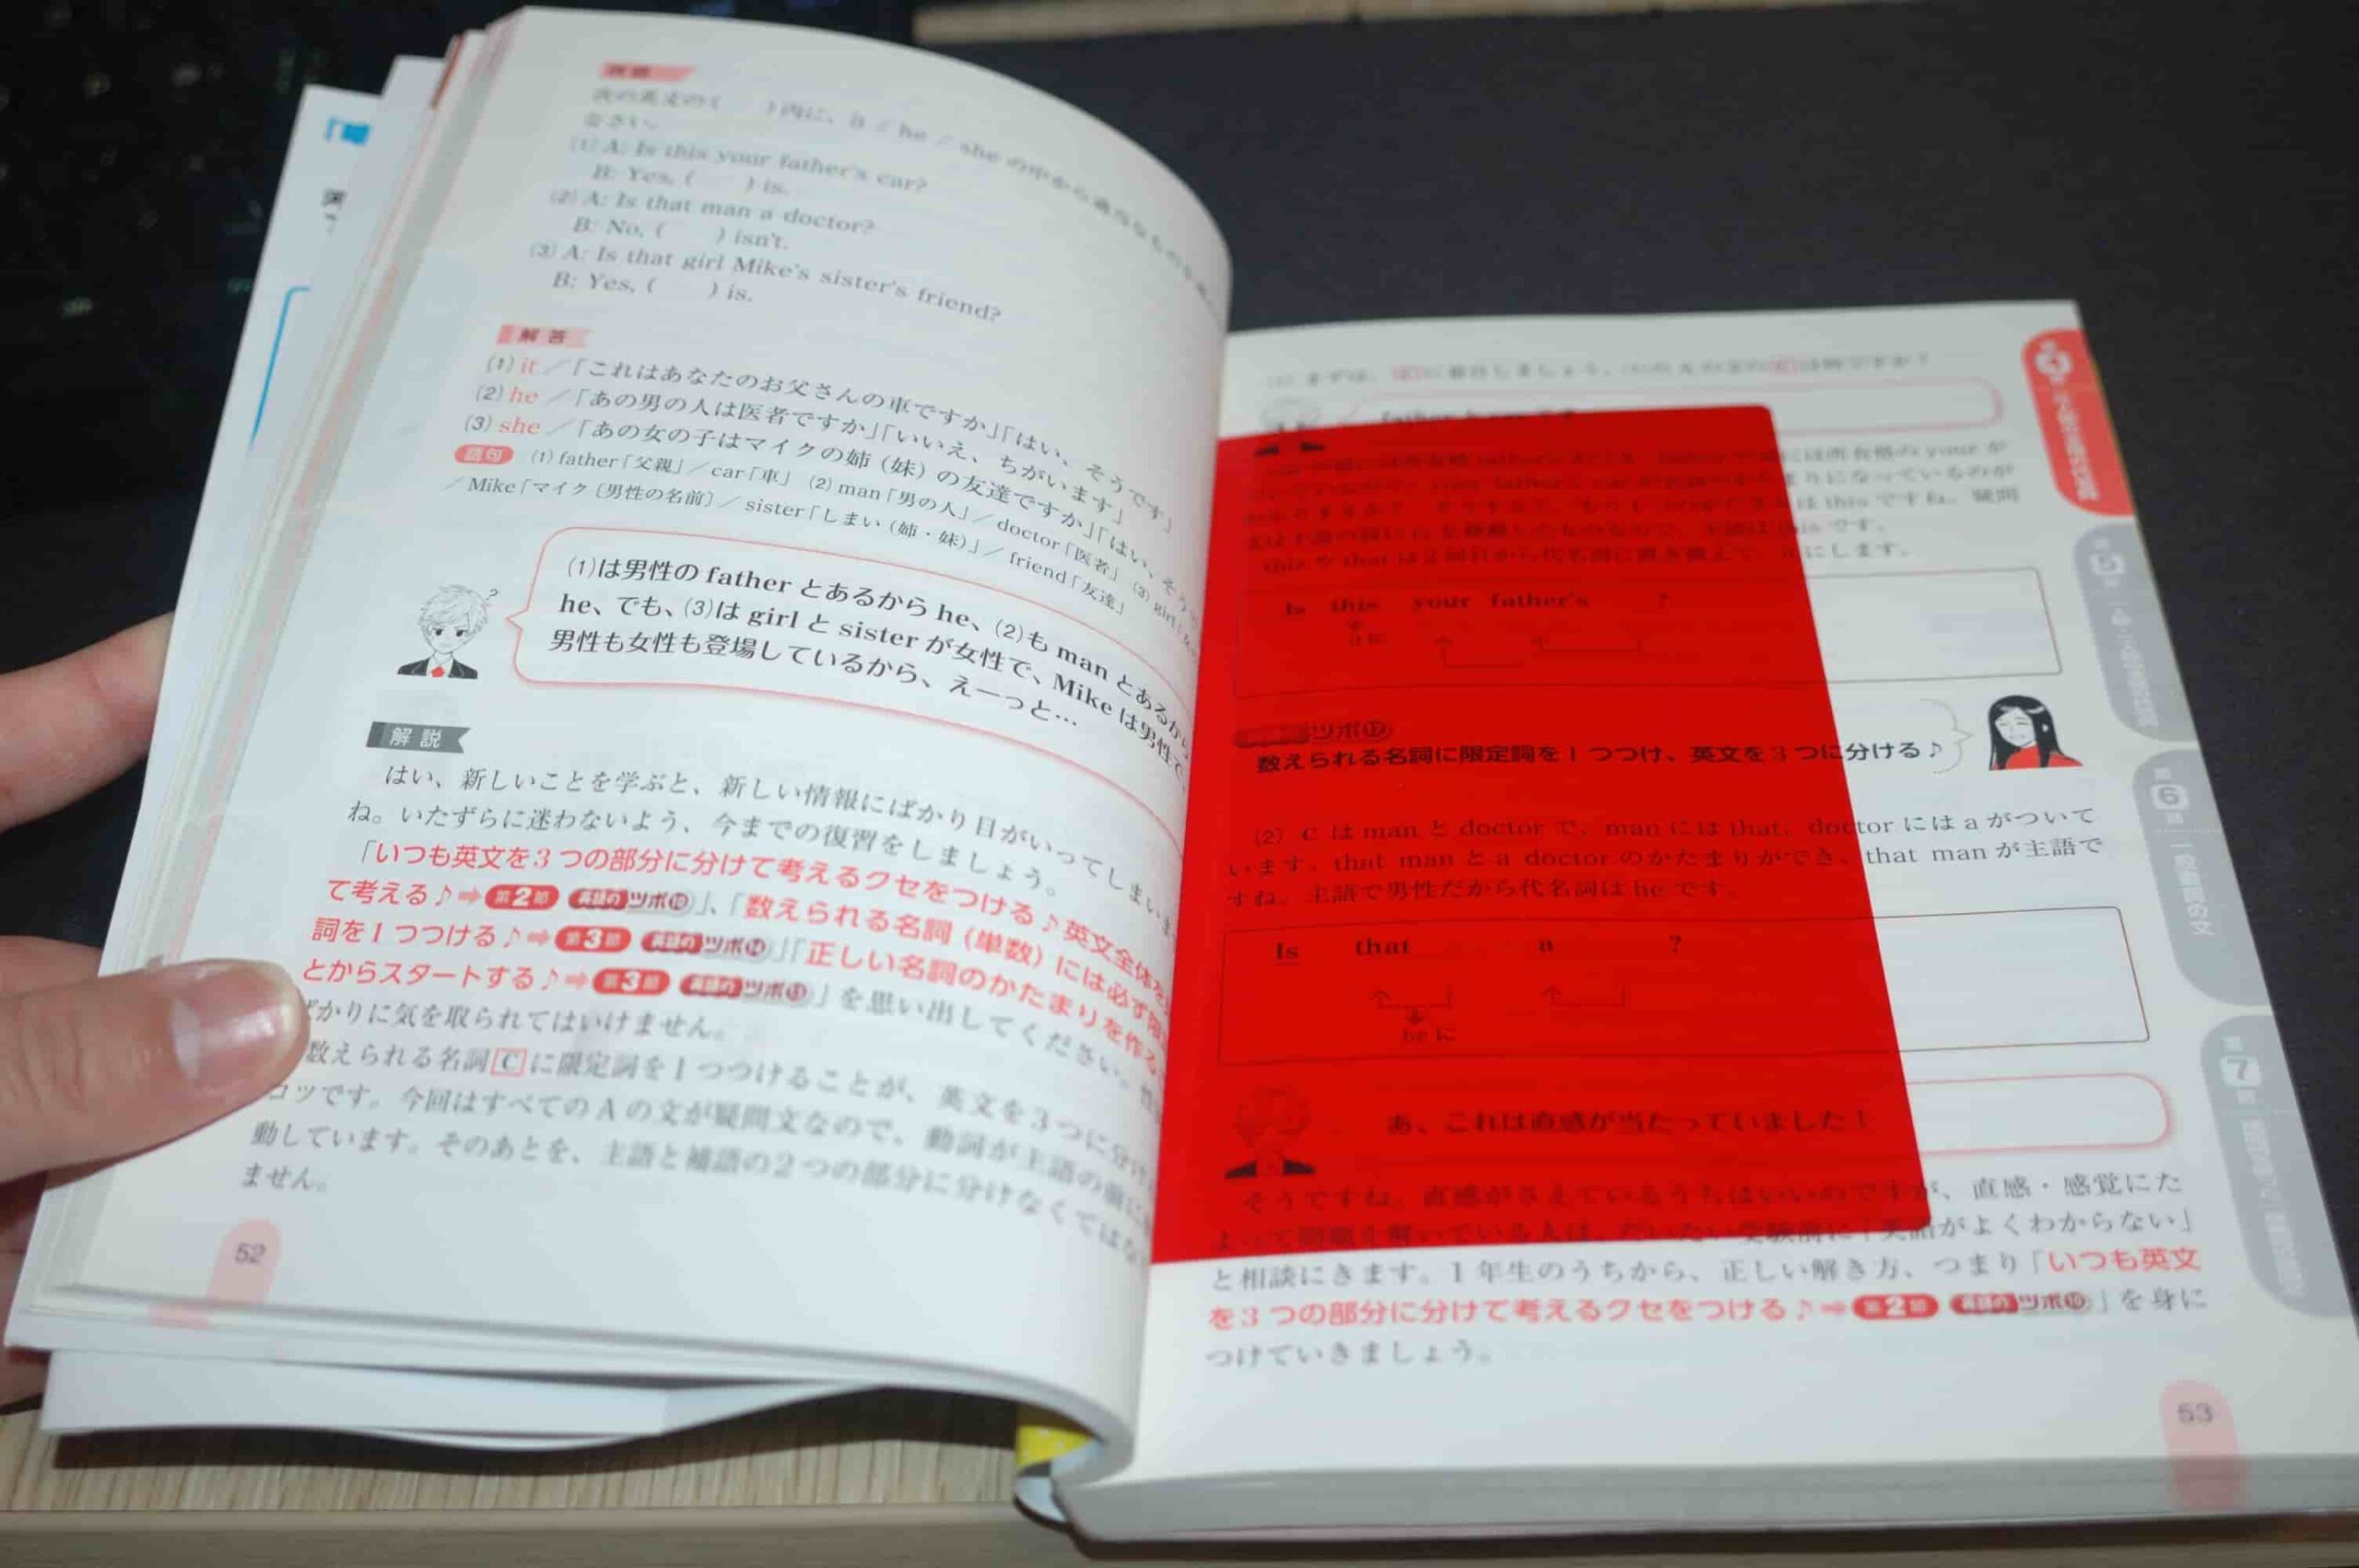 例題
次の英文の(　　)内に、it / he / she の中から適当なものを
なさい。
(1) A: Is this your father's car?
B: Yes, (　　) is.
(2) A: Is that man a doctor?
B: No, (　　) isn't.
(3) A: Is that girl Mike's sister's friend?
B: Yes, (　　) is.
解答
(1) it ／「これはあなたのお父さんの車ですか」「はい、そうです」
(2) he ／「あの男の人は医者ですか」「いいえ、ちがいます」
(3) she ／「あの女の子はマイクの姉（妹）の友達ですか」「はい、そう
語句 (1) father「父親」／car「車」 (2) man「男の人」／doctor「医者」 (3) girl
／Mike「マイク〔男性の名前〕／sister「しまい（姉・妹）」／friend「友達」
(1)は男性の father とあるから he、(2)も man とあるから
he、でも、(3)は girl と sister が女性で、Mike は男性で、
男性も女性も登場しているから、えーっと…
解説
はい、新しいことを学ぶと、新しい情報にばかり目がいってしまいま
ね。いたずらに迷わないよう、今までの復習をしましょう。
「いつも英文を3つの部分に分けて考えるクセをつける♪英文全体を
て考える♪➡第2節 英語のツボ⑩」、「数えられる名詞（単数）には必ず限
詞を1つつける♪➡第3節 英語のツボ」「正しい名詞のかたまりを作る
とからスタートする♪➡第3節 英語のツボ」を思い出してください。
ばかりに気を取られてはいけません。
数えられる名詞Cに限定詞を1つつけることが、英文を3つに分け
コツです。今回はすべてのAの文が疑問文なので、動詞が主語の前に
動しています。そのあとを、主語と補語の2つの部分に分けなくてはな
ません。
52
father と car です
には所有格の your が
まりになっているのが
は this ですね。疑問
this です。
this や that は2回目から代名詞に置き換えて、it にします。
Is this your father's ?
it に
英語のツボ⑫
数えられる名詞に限定詞を1つつけ、英文を3つに分ける♪
(2) C は man と doctor で、man には that、doctor には a がついて
います。that man と a doctor のかたまりができ、that man が主語で
すね。主語で男性だから代名詞は he です。
Is that a ?
he に
あ、これは直感が当たっていました！
そうですね。直感がさえているうちはいいのですが、直感・感覚にた
よって問題を解いている人は、だいたい受験前に「英語がよくわからない」
と相談にきます。1年生のうちから、正しい解き方、つまり「いつも英文
を3つの部分に分けて考えるクセをつける♪➡第2節 英語のツボ⑩」を身に
つけていきましょう。
53
第4節
第5節
第6節 一般動詞の文
第7節